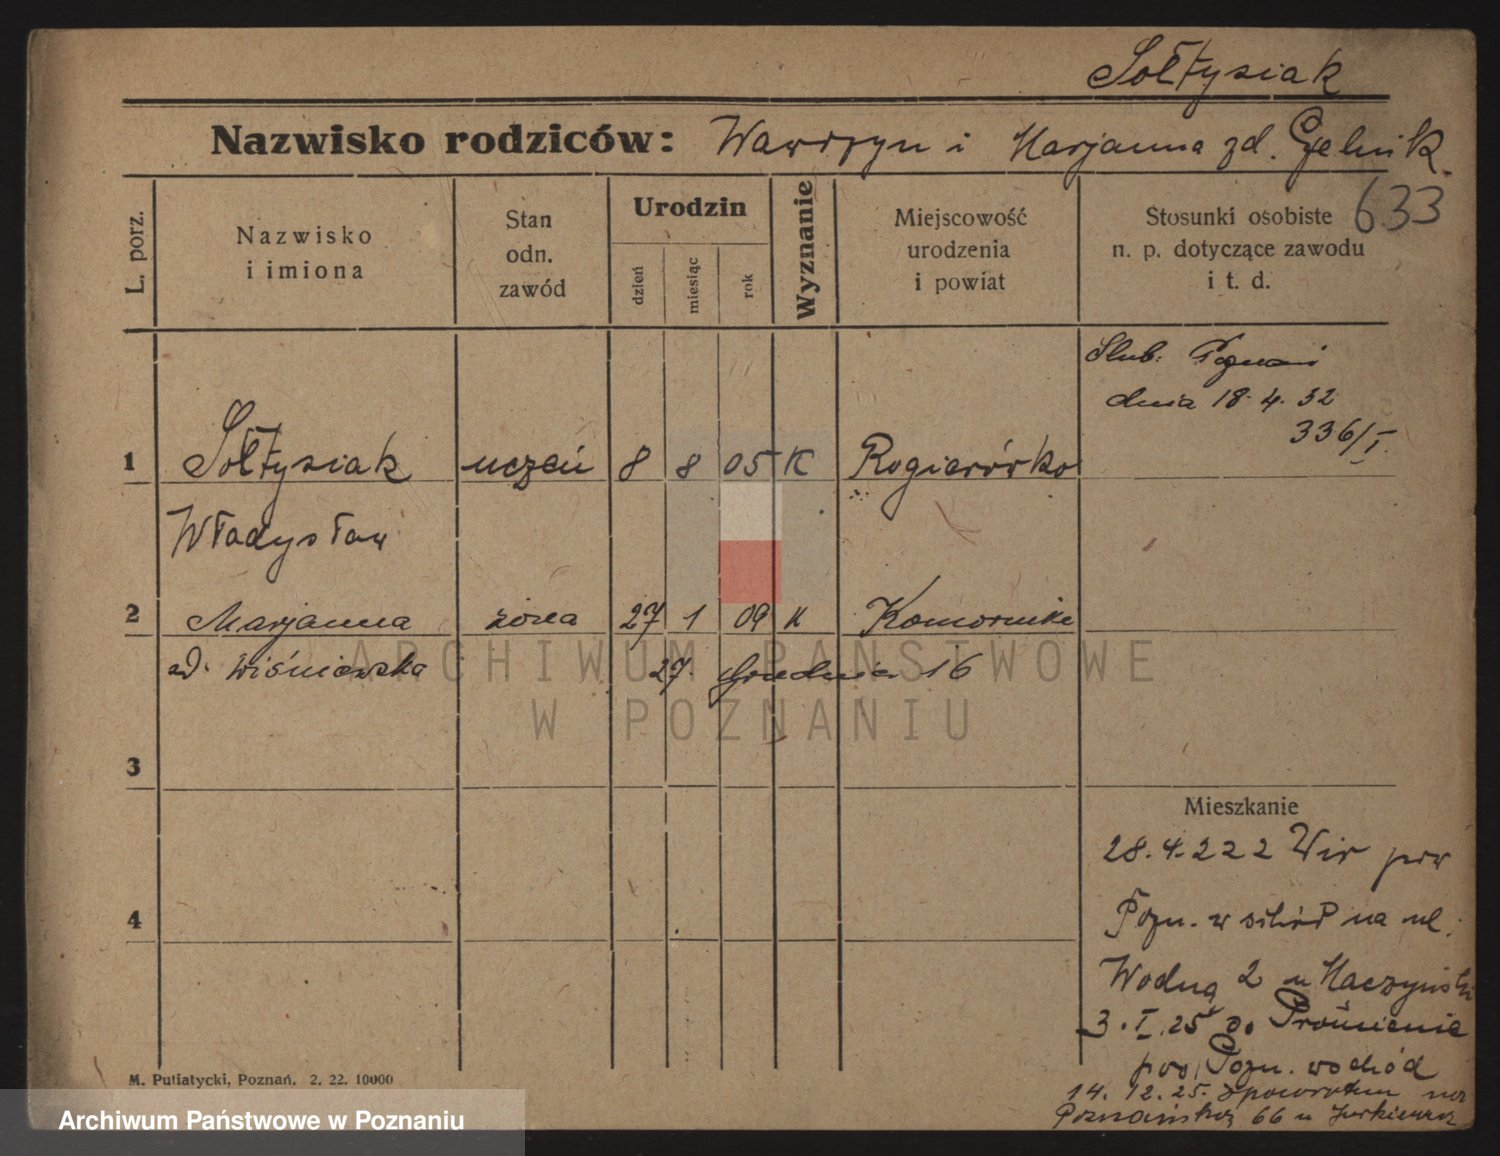 Sołtysiak
Nazwisko rodziców: Wawrzyn i Marjanna zd.
633
L. porz.
Nazwisko i imiona
Stan odn. zawód
Urodzin
dzień
miesiąc
rok
Wyznanie
Miejscowość urodzenia i powiat
Stosunki osobiste n. p. dotyczące zawodu i t. d.
Ślub: Poznań
dnia 18. 4. 32
336/I.
1 Sołtysiak uczeń 8 8 05 K Rogierówko
Władysław
2 Marjanna żona 27 1 09 K Komorniki
zd. Wiśniewska 27. Grudnia 16
ARCHIWUM PAŃSTWOWE
W POZNANIU
3
Mieszkanie
28.4.222 Wir pow
4
Pozn. w na ul.
Wodną 2 u Maczyński
3. I. 25 do Promienie
pow Pozn. wschód
14. 12. 25. spowrotem na
Poznańską 66 u
M. Putiatycki, Poznań. 2. 22. 10000
Archiwum Państwowe w Poznaniu